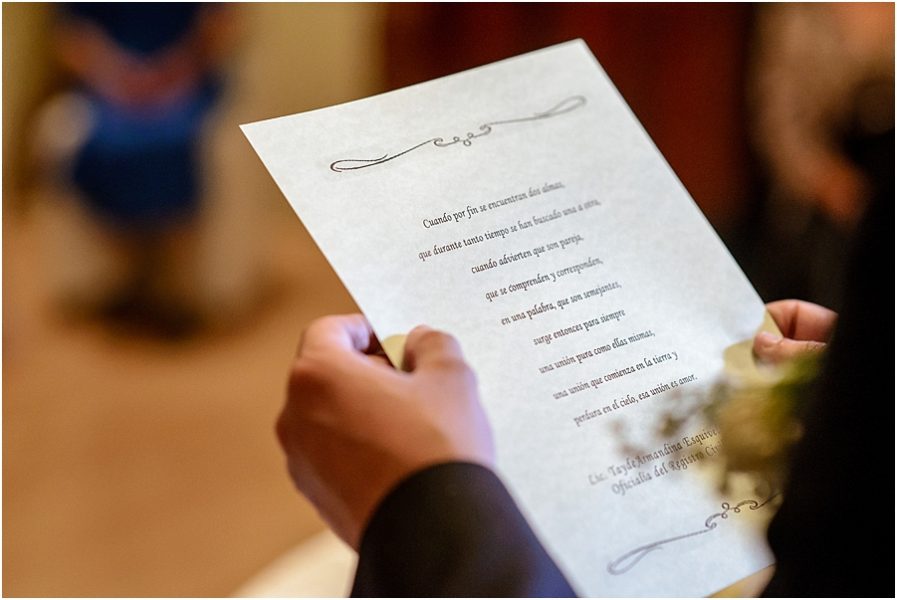 Cuando por fin se encuentran dos almas,
que durante tanto tiempo se han buscado una a otra,
cuando advierten que son pareja,
que se comprenden y corresponden,
en una palabra, que son semejantes,
surge entonces para siempre
una unión pura como ellas mismas,
una unión que comienza en la tierra y
perdura en el cielo, esa unión es amor.
Lic. Tayde Armandina Esquive
Oficialía del Registro Civi